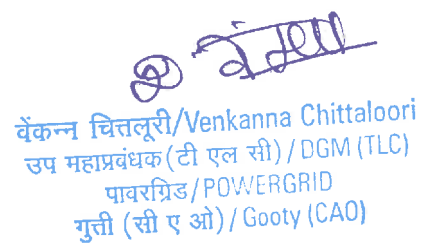 वेंकन्न चित्तलूरी/Venkanna Chittaloori
उप महाप्रबंधक(टी एल सी)/DGM (TLC)
पावरग्रिड/POWERGRID
गुत्ती (सी ए ओ)/Gooty (CAO)